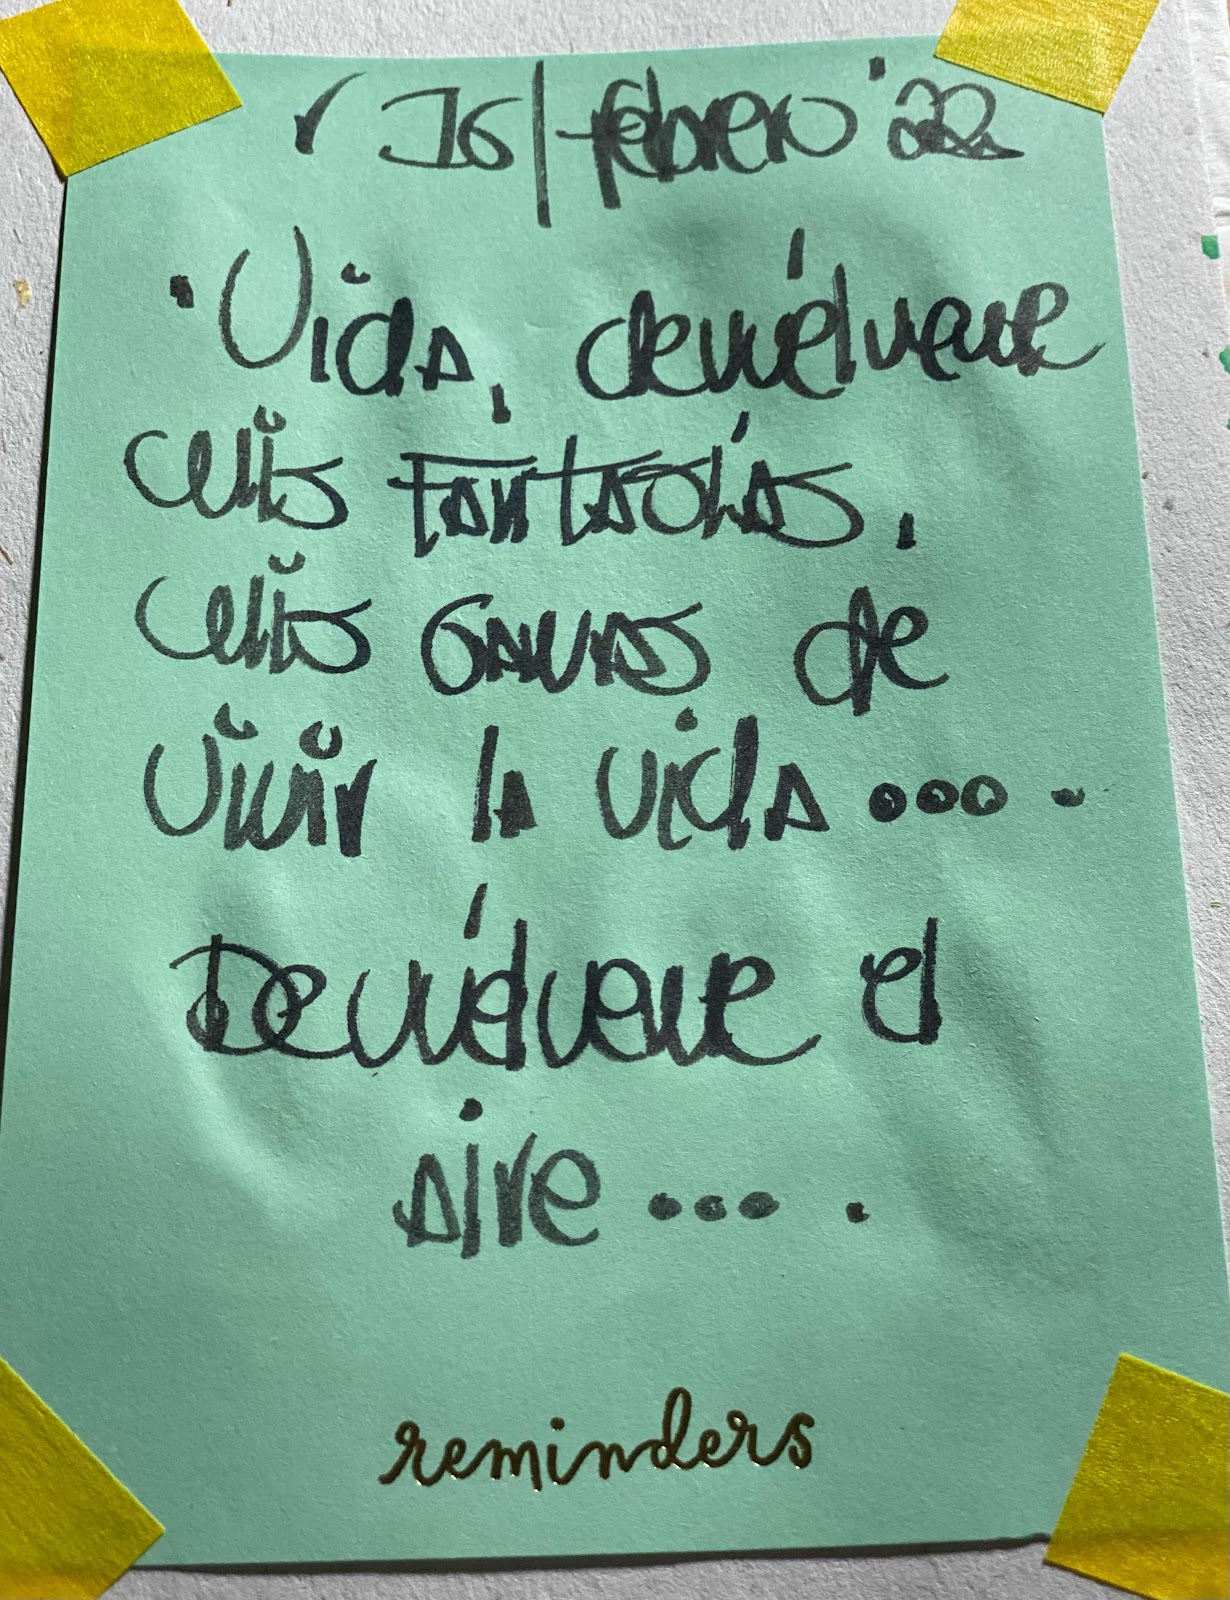 ✓ 16/febrero '22
· Vida, devuélveme
mis fantasías,
mis ganas de
vivir la vida... .
Devuélveme el
aire... .
reminders